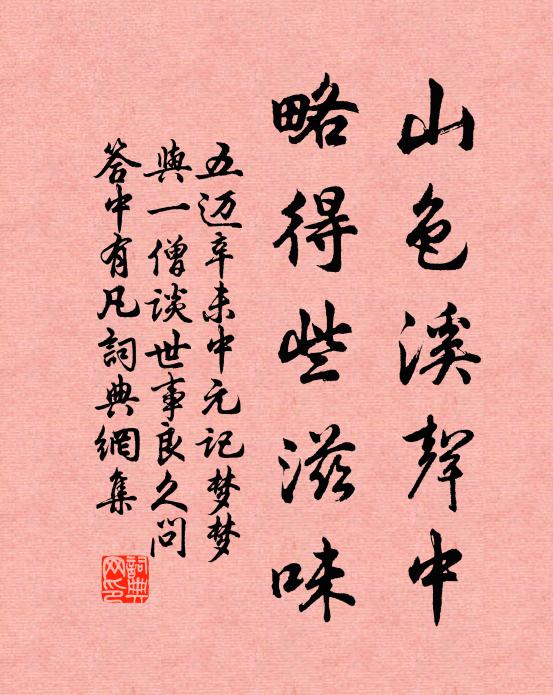 山色溪聲中
略得些滋味
五迈辛未中元记梦梦
與一僧談世事良久問
答中有凡詞典網集
詞典网印